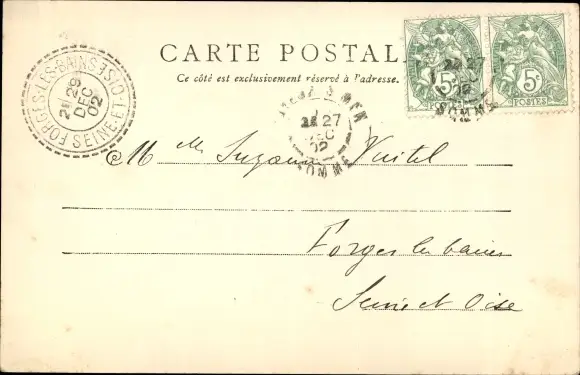 CARTE POSTALE
Ce côté est exclusivement réservé à l'adresse.
FORGES-LES-BAINS SEINE-ET-OISE
29
DEC
02
27
DEC
02
SOMME
27
02
SOMME
5c 5c
POSTES POSTES
Melle Suzanne
Forges les bains
Seine et Oise